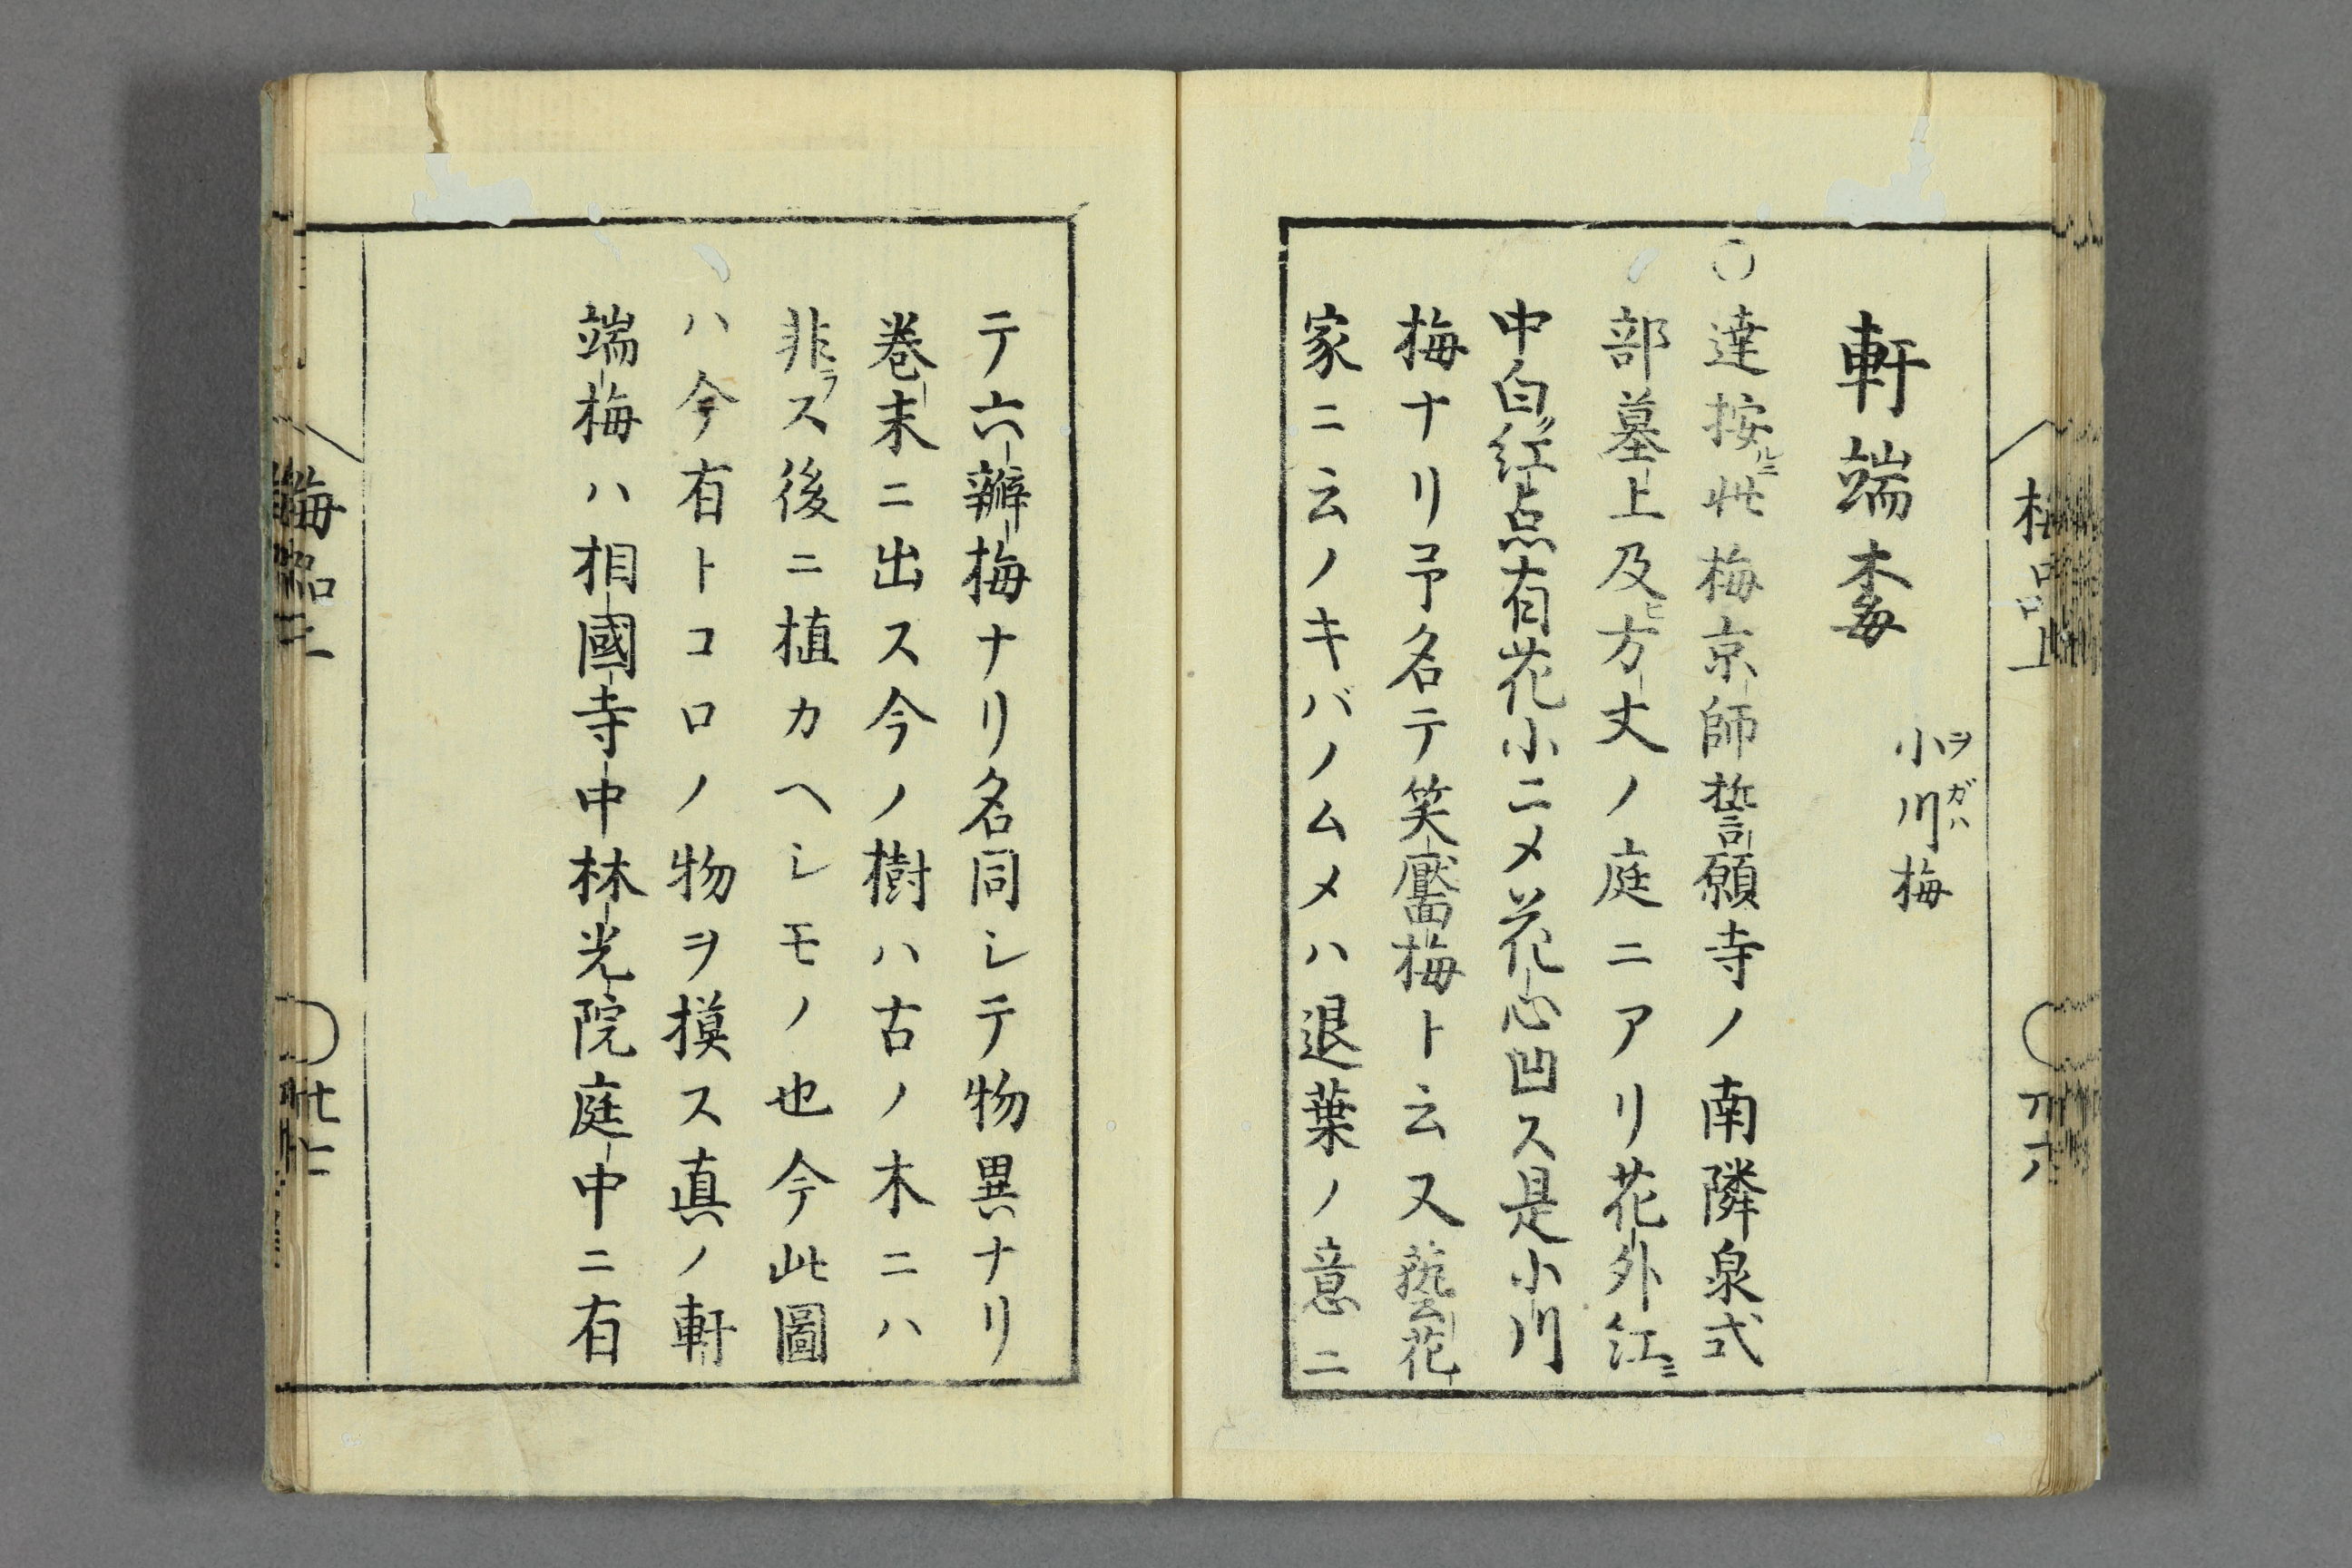 軒端楳
小川梅
ヲガハ
○達按ルニ此梅京師誓願寺ノ南隣泉式
部墓上及ヒ方丈ノ庭ニアリ花外江ニ
中白ク紅点有花小ニメ花心凹ス是小川
梅ナリ予名テ笑靨梅ト云又藝花
家ニ云ノキバノムメハ退葉ノ意ニ
テ六瓣梅ナリ名同シテ物異ナリ
巻末ニ出ス今ノ樹ハ古ノ木ニハ
非ラス後ニ植カヘシモノ也今此圖
ハ今有トコロノ物ヲ摸ス真ノ軒
端梅ハ相國寺中林光院庭中ニ有